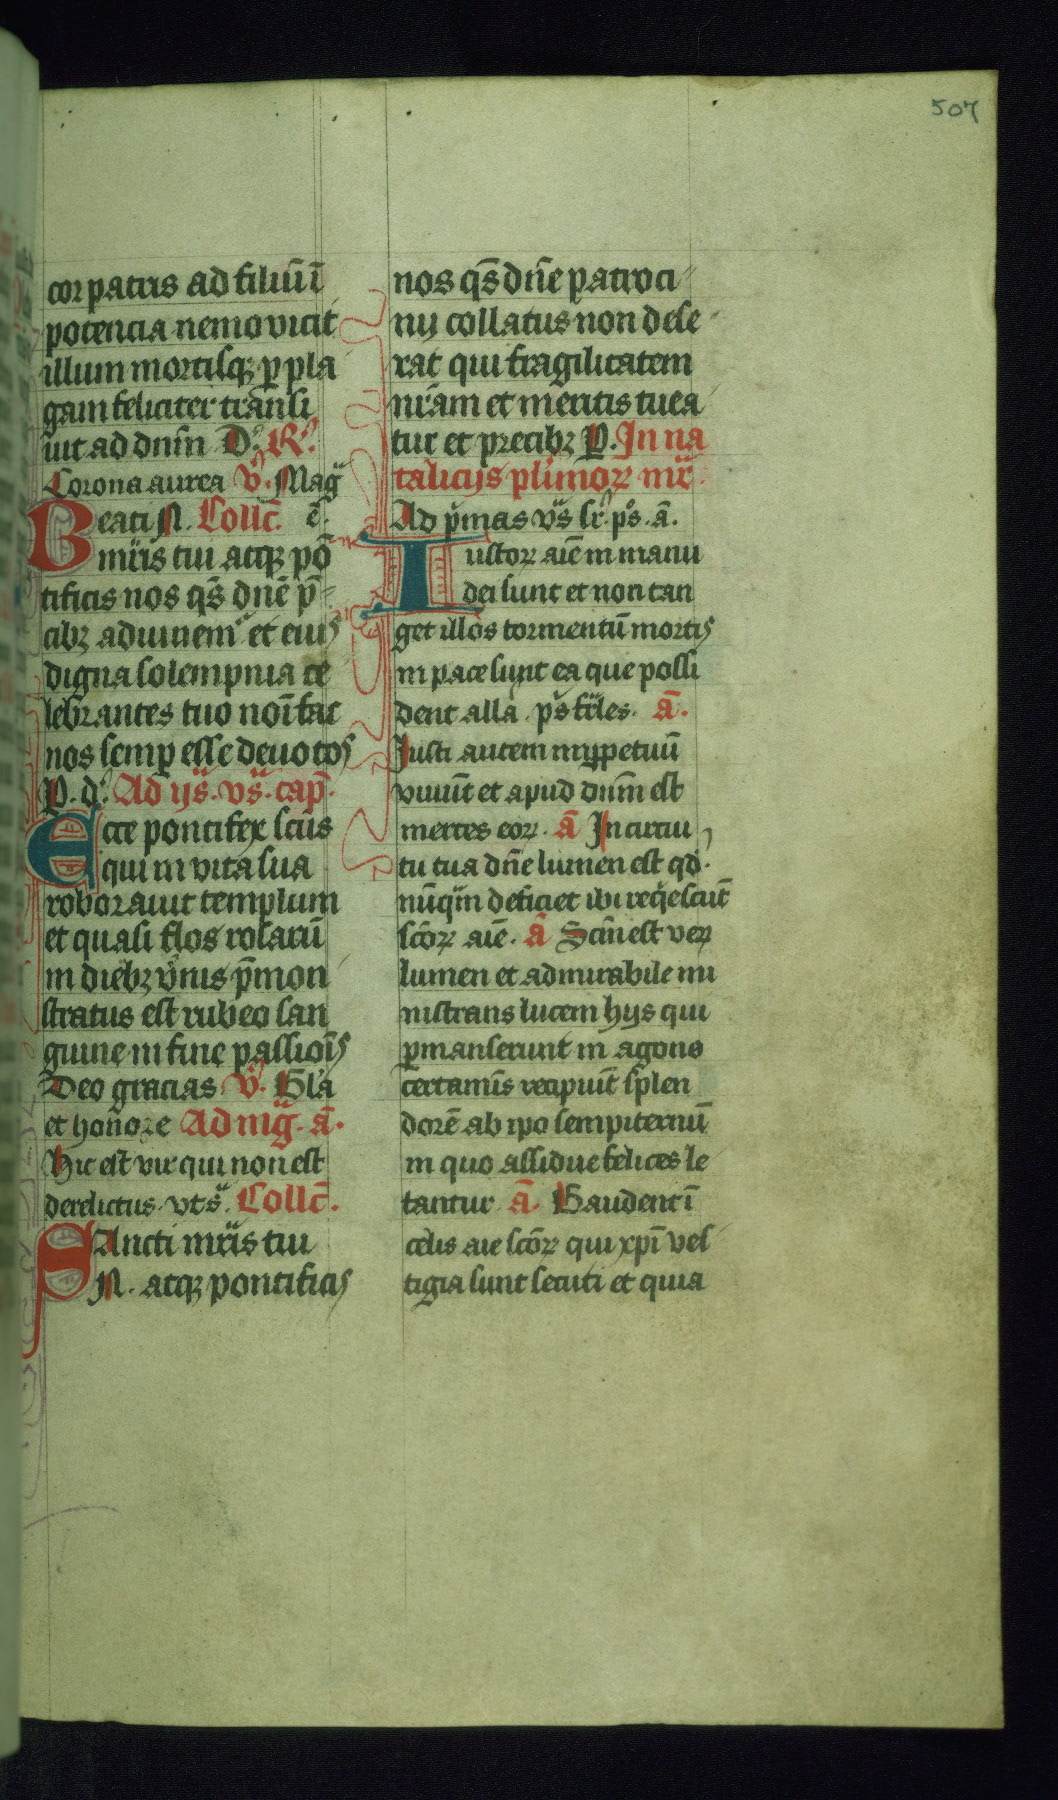 507
cor patris ad filiū ī
potencia nemo vicit
illum mortisqꝫ ꝑ pla
gam feliciter transi
uit ad dn̄m D. R.
Corona aurea V. Mag
Beati N. Collc̄. ē.
mr̄is tui atqꝫ pō
tificis nos qs̄ dn̄e p̄
cibꝫ adiuuem et eius
digna solempnia ce
lebrantes tuo noī fac
nos semꝑ esse deuotos
P. d. Ad ijs. vs̄. cap̄.
Ecce pontifex scūs
qui in vita sua
roborauit templum
et quasi flos rosarū
in diebꝫ v̄nis p̄mon
stratus est rubeo san
guine in fine passioīs
Deo gracias V. Gl'a
et honore Ad mḡ. ā.
Hic est vir qui non est
derelictus. vt s. Collc̄.
SAncti mr̄is tui
N. atqꝫ pontificis
nos qs̄ dn̄e patroci
nij collatus non dese
rat qui fragilitatem
nr̄am et meritis tuea
tur et precibꝫ P. In na
talicijs pl'imoꝝ mr̄
Ad p̄mas vs̄ sr. ps. ā.
Iustoꝝ aīe in manu
dei sunt et non tan
get illos tormentū mortis
in pace sunt ea que possi
dent alla ps fr̄les. ā.
Justi autem inꝑpetuū
viuūt et apud dn̄m est
merces eoꝝ. ā In circui
tu tua dn̄e lumen est qd
nūqm̄ deficiet ibi reqescūt
scōꝝ aīe. ā Scm̄ est veꝝ
lumen et admirabile mi
nistrans lucem hijs qui
ꝑmanserunt in agone
certaminis recipiūt splen
dorē ab ipo sempiternū
in quo assidue felices le
tantur ā. Gaudent ī
celis aīe scōꝝ qui xp̄i ves
tigia sunt secuti et quia